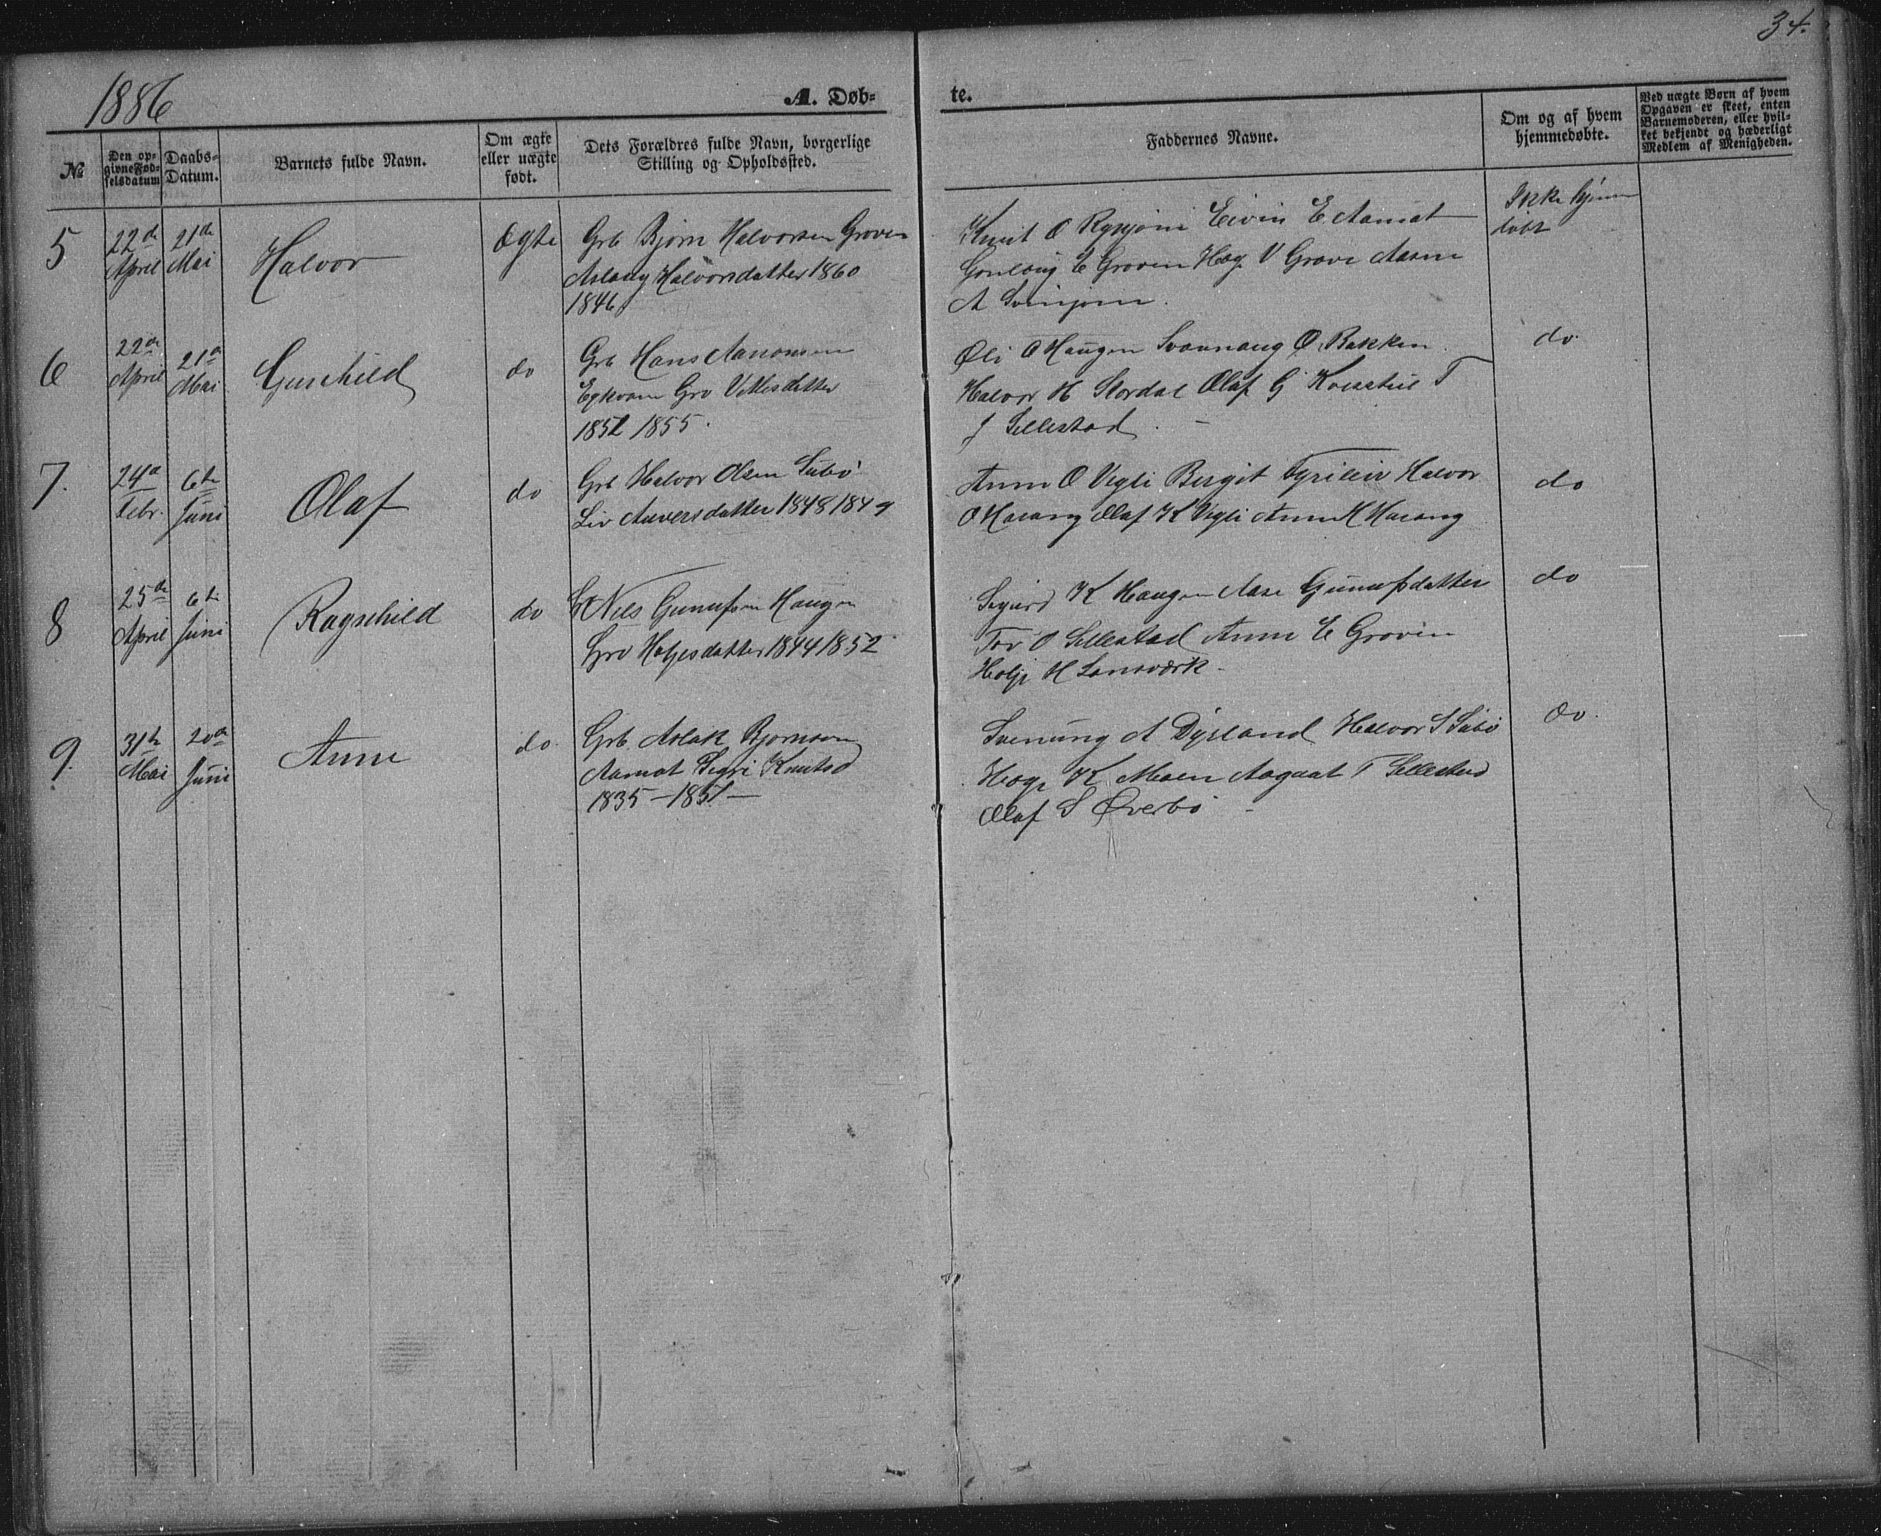 34.
1886
A. Døb-
te.
№
Den op-
givne Fød-
selsdatum
Daabs-
Datum.
Barnets fulde Navn.
Om ægte
eller uægte
født.
Dets Forældres fulde Navn, borgerlige
Stilling og Opholdssted.
Faddernes Navne.
Om og af hvem
hjemmedøbte.
Ved uægte Børn af hvem
Opgaven er skeet, enten
Barnemoderen, eller hvil-
ket bekjendt og hæderligt
Medlem af Menigheden.
5
22de
April
21de
Mai
Halvor
Ægte
Grb Bjørn Halvorsen Groven
Aslaug Halvorsdatter 1860
1846
Knut O Eivin E Aamot
E Groven Hæge V Grove
A
Ikke hjem
døbt
6
22de
April
21de
Mai
Gunhild
do
Grb Hans Aanonsen
Gro
1852 1855.
Øli O Haugen Svannaug O. Bakken
Halvor H Stordal Olaf G T
J Sellestad
do.
7.
24de
Febr.
6te
Juni
Olaf
do
Grb Halvor Olsen Subø
Liv 1848 1849
Anne O Vigli Bergit Halvor
O Harang Olaf K Vigli Anne H Harang
do
8
25de
April
6te
Juni
Ragnhild
do
Nils Gunufsen Haugen
Gro Holjesdatter 1844 1852
Sigurd K Haugen Aase Gunufsdatter
Tov O Sellestad Anne E Groven
Holje H Lonsværk
do
9.
31te
Mai
20de
Juni
Anne
do.
Grb Aslak Bjørnsen
Aamot Sigri Knutsd
1835 — 1851 —
Svenung A Dyrland Halvor S Subø
Hæge K Moen Aagaat T Sellestad
Olaf S Øverbø
do.